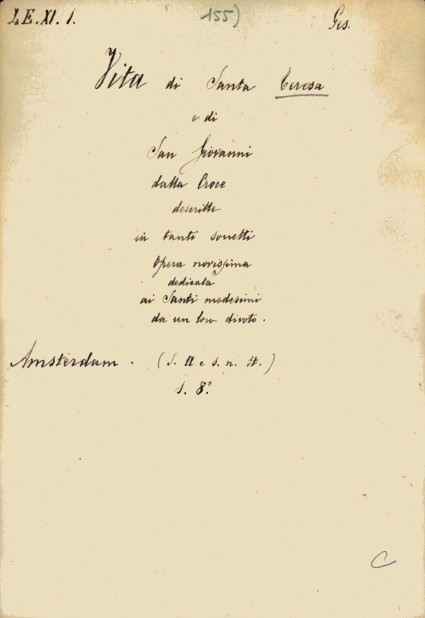 I.E.XI.1. 155) Ges.
Vita di Santa Teresa
e di
San Giovanni
dalla Croce
descritte
in tanti sonetti
Opera novissima
dedicata
ai Santi medesimi
da un loro divoto.
Amsterdam. (S. A. e s. n. St.)
1. 8°
C